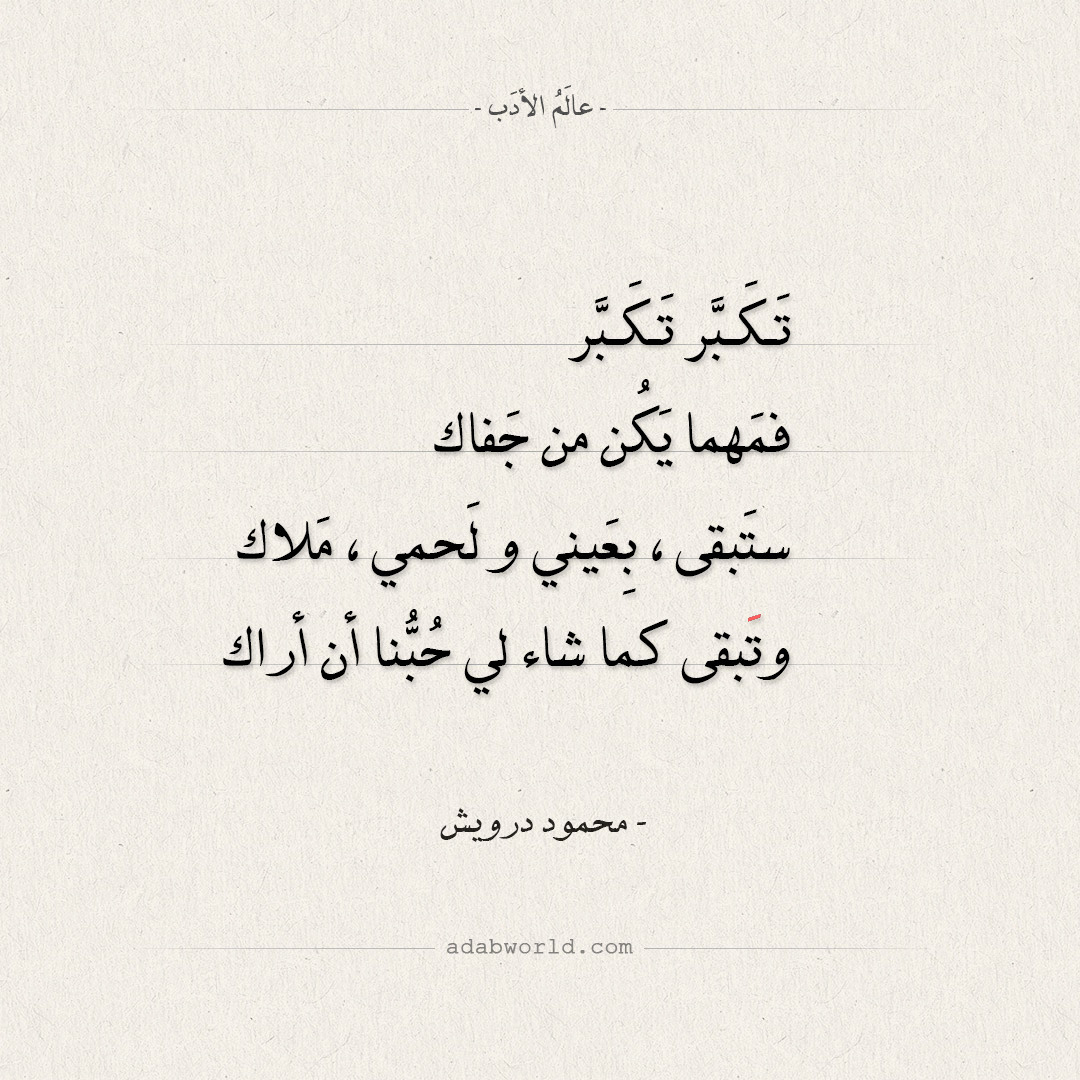 - عالَمُ الأدَب -
تَـكَـبَّر تَـكَـبَّر
فمَهما يَكُن من جَفاك
ستَبقى ، بِعَيني و لَحمي ، مَلاك
وتَبقى كما شاء لي حُبُّنا أن أراك
- محمود درويش
adabworld.com